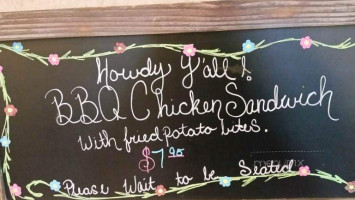 Howdy Y'all!
BBQ Chicken Sandwich
with fried potato bites.
$7.95
Please Wait to be Seated